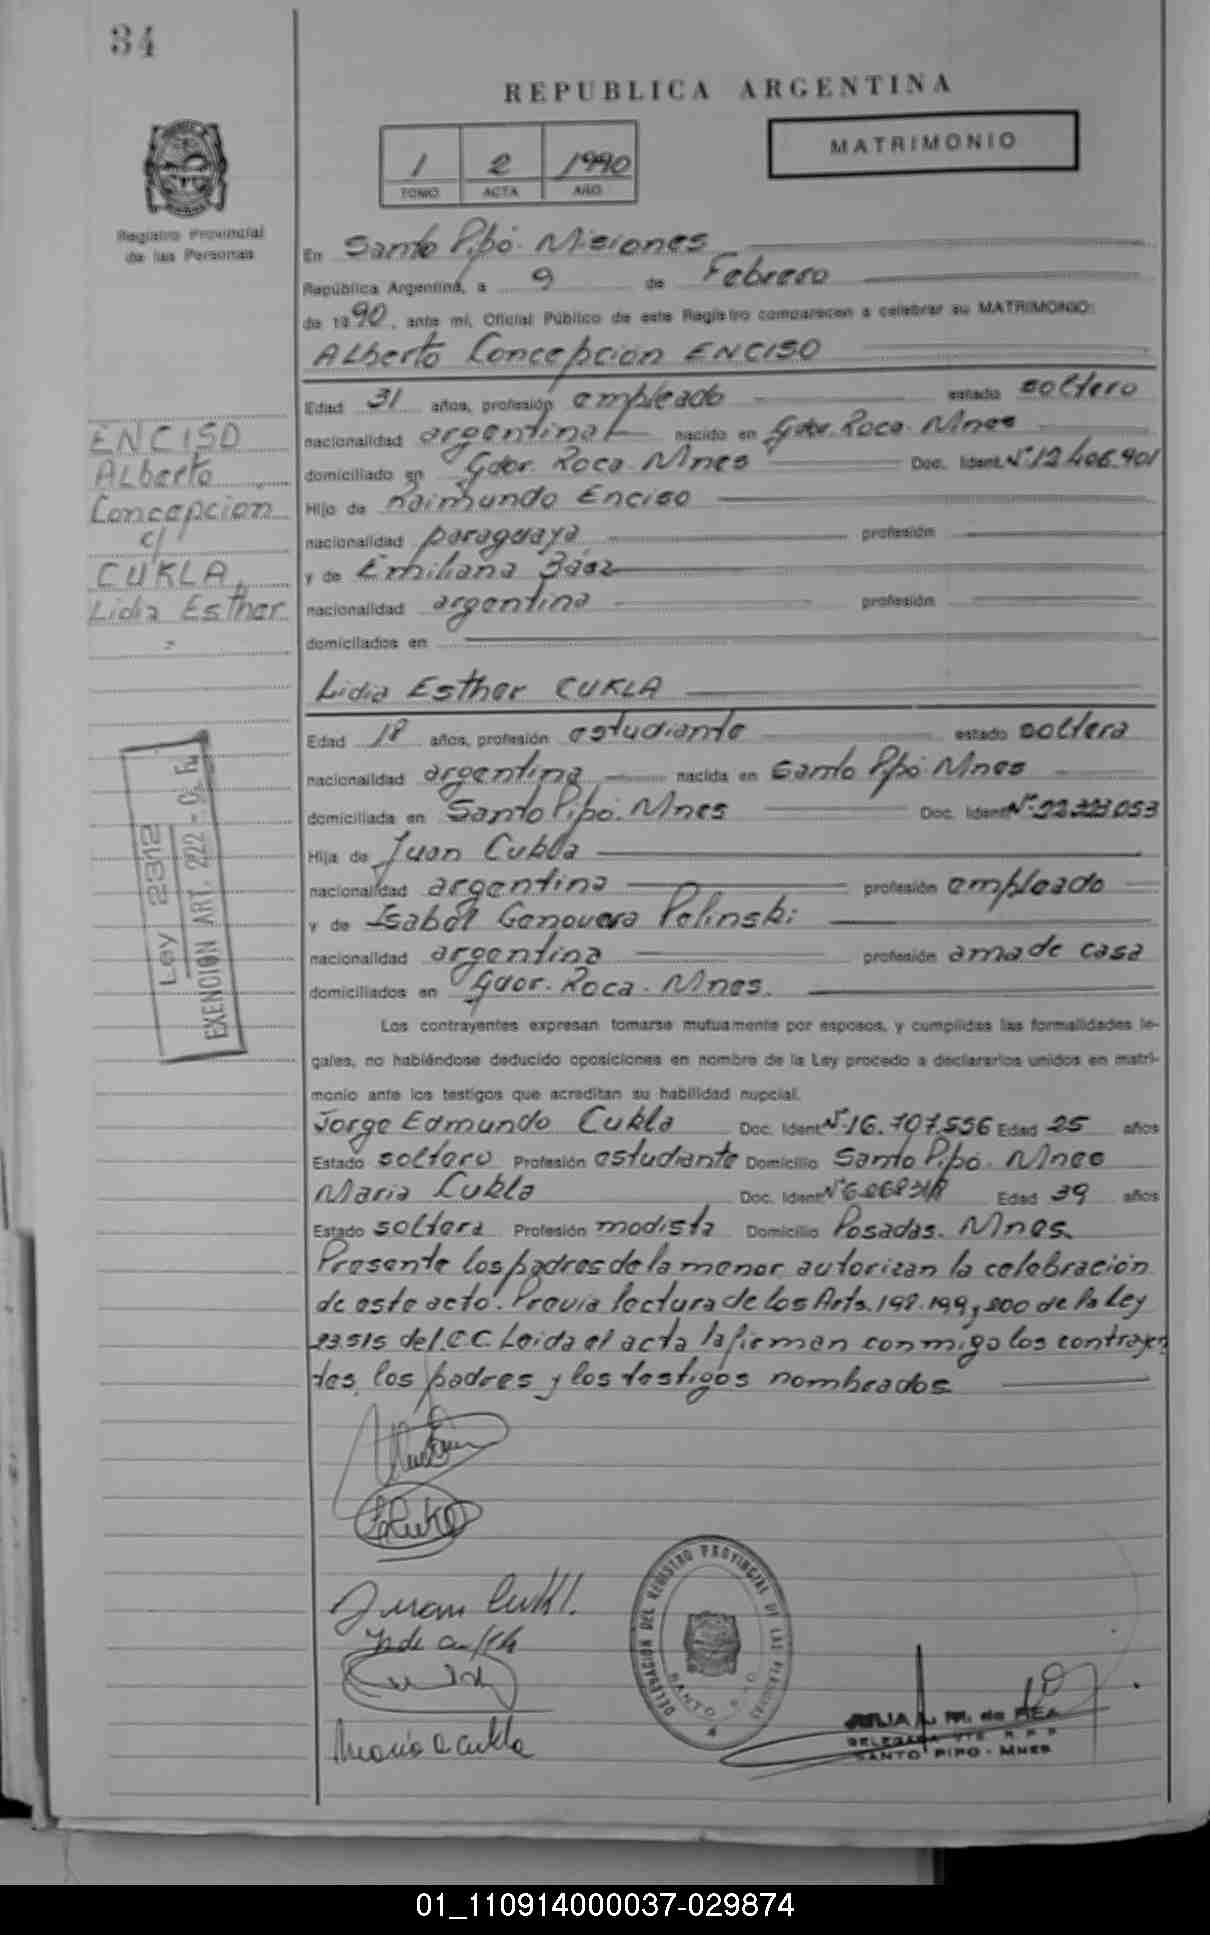 34
REPUBLICA ARGENTINA
MATRIMONIO
1 2 1990
TOMO ACTA AÑO
Registro Provincial
de las Personas
En Santo Pipó - Misiones
República Argentina, a 9 de Febrero
de 1990, ante mí, Oficial Público de este Registro comparecen a celebrar su MATRIMONIO:
Alberto Concepción ENCISO
Edad 31 años, profesión empleado estado soltero
nacionalidad argentina nacido en Gdor. Roca. Mnes
domiciliado en Gdor. Roca. Mnes Doc. Ident. Nº 12.406.901
Hijo de Raimundo Enciso
nacionalidad paraguaya profesión
y de Emiliana Báez
nacionalidad argentina profesión
domiciliados en
ENCISO
Alberto
Concepcion
c/
CUKLA,
Lidia Esther
=
Lidia Esther CUKLA
Edad 18 años, profesión estudiante estado soltera
nacionalidad argentina nacida en Santo Pipó Mnes
domiciliada en Santo Pipó. Mnes Doc. Ident. Nº
Hija de Juan Cukla
nacionalidad argentina profesión empleado
y de Isabel Genoveva Polinski
nacionalidad argentina profesión ama de casa
domiciliados en Gdor. Roca. Mnes.
Ley 2312
EXENCION ART. 222 -
Los contrayentes expresan tomarse mutuamente por esposos, y cumplidas las formalidades le-
gales, no habiéndose deducido oposiciones en nombre de la Ley procedo a declararlos unidos en matri-
monio ante los testigos que acreditan su habilidad nupcial.
Jorge Edmundo Cukla Doc. Ident. Nº 16.707.556 Edad 25 años
Estado soltero Profesión estudiante Domicilio Santo Pipó. Mnes
Maria Cukla Doc. Ident. Nº Edad 39 años
Estado soltera Profesión modista Domicilio Posadas. Mnes.
Presente los padres de la menor autorizan la celebración
de este acto. Previa lectura de los Arts. 198.199, 200 de la Ley
23.515 del C.C. Leida el acta la firman conmigo los contrayen
tes, los padres y los testigos nombrados
Juan Cukl.
Maria Cukla
DELEGACION DEL REGISTRO PROVINCIAL DE LAS PERSONAS
SANTO PIPO
JULIA L. M. de REA
DELEGADA
SANTO PIPO - MNES
01_110914000037-029874